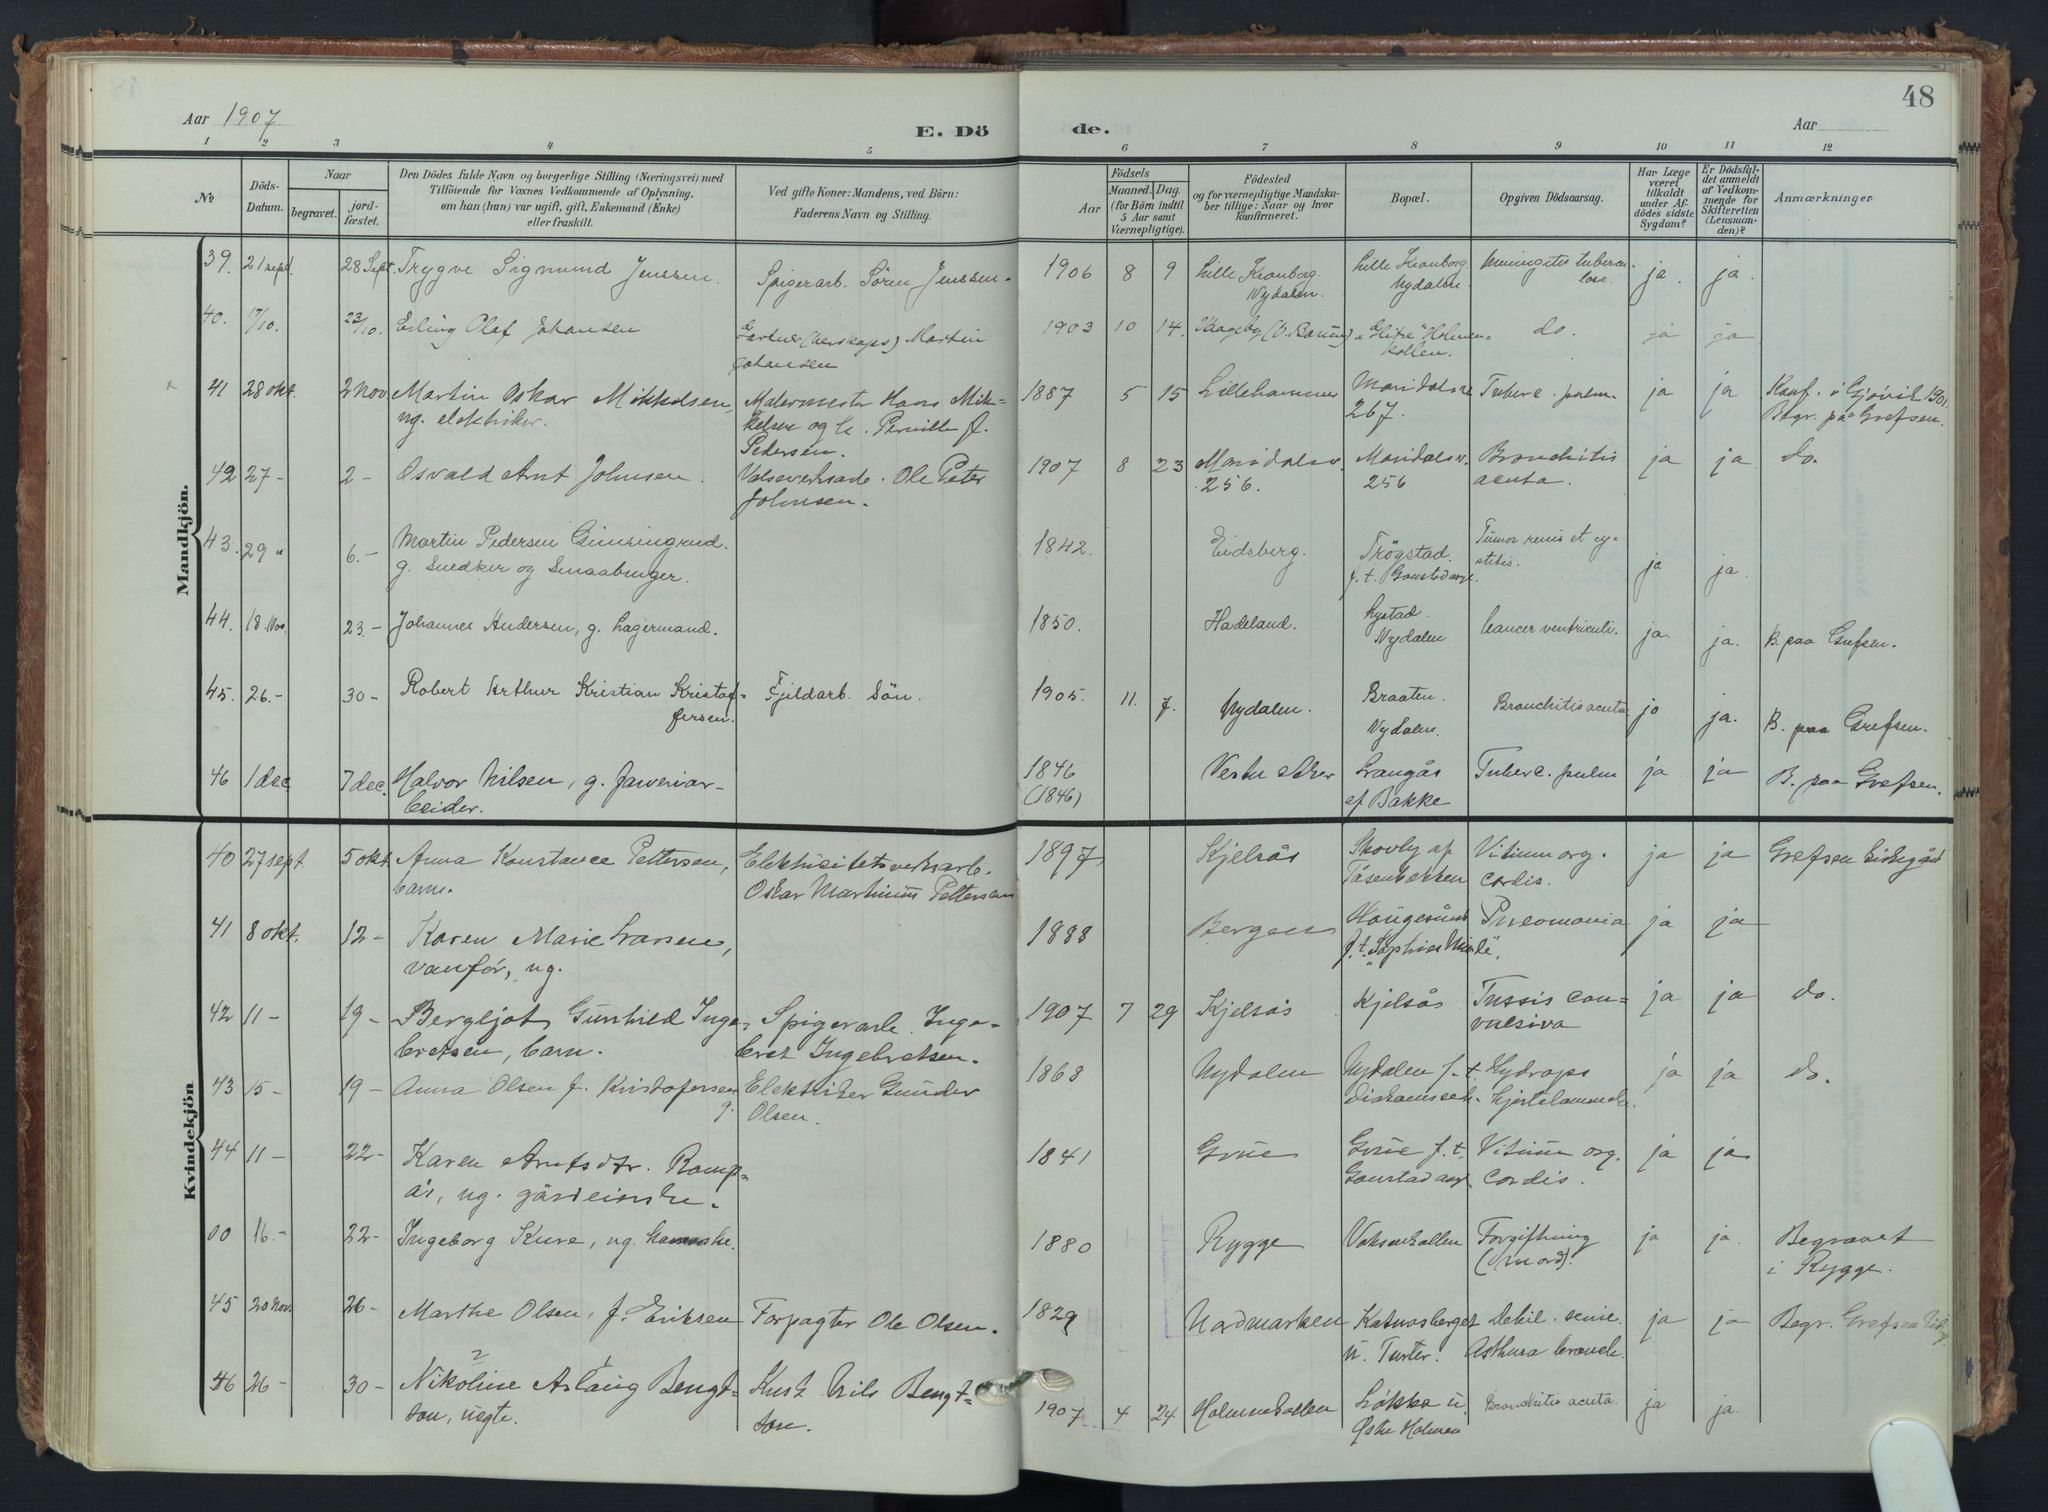 48
Aar 1907
E. Dö
de.
Aar
1 2 3 4 5 6 7 8 9 10 11 12
No
Döds-
Datum.
Naar
begravet.
jord-
fæstet.
Den Dödes fulde Navn og borgerlige Stilling (Næringsvei) med
Tilföiende for Voxnes Vedkommende af Oplysning.
om han (hun) var ugift, gift, Enkemand (Enke)
eller fraskilt.
Ved gifte Koner: Mandens, ved Börn:
Faderens Navn og Stilling.
Födsels
Aar
Maaned.
Dag.
(for Börn indtil
5 Aar samt
Værnepligtige).
Födested
og for værnepligtige Mandska-
ber tillige: Naar og hvor
konfirmeret.
Bopæl.
Opgiven Dödsaarsag.
Har Læge
været
tilkaldt
under Af-
dödes sidste
Sygdom?
Er Dödsfal-
det anmeldt
af Vedkom-
mende for
Skifteretten
(Lensman-
den)?
Anmærkninger
Mandkjön.
39. 21 sept. 28 Sept. Trygve Sigmund Jenssen. Spigerarb. Sören Jenssen. 1906 8 9 Lille Kronborg Lille Kronborg meningitis tubercu-
Nydalen. Nydalen lose. ja. ja.
40. 17/10. 23/10. Erling Olaf Johansen Gartner (herskaps) Martin 1903 10 14. (V. Bærum) Holmen- do. ja ja
Johansen kollen.
41 28 okt. 2 nov. Martin Oskar Mikkelsen, Malermester Hans Mik- 1887 5 15 Lillehammer Maridalsv. Tuberc. pulm. ja ja Konf. i Gjøvik 1901.
ug. elektriker. kelsen og h. Pernille f. 267. Begr. paa Grefsen.
Pedersen.
42 27 - 2 - Osvald Arnt Johnsen. Valseverksarb. Ole Peter 1907 8 23 Maridalsv. Maridalsv. Bronchitis ja ja do.
Johnsen. 256. 256 acuta.
43. 29 " 6. - Martin Pedersen 1842. Eidsberg. Trögstad. Tumor renis et cy-
g. Snedker og Smaabruger. f. t. Gaustad asyl. stitis. ja ja.
44. 18 Nov. 23. - Johannes Andersen, g. Lagermand. 1850. Hadeland. Lystad. Cancer ventriculi. ja. ja. B. paa Grefsen.
Nydalen
45. 26. - 30 - Robert Arthur Kristian Kristof- Fjeldarb. Sön. 1905. 11. 7. Nydalen. Braaten. Bronchitis acuta ja ja. B. paa Grefsen.
fersen. Nydalen.
46 1 dec 7 dec. Halvor Nilsen, g. farveriar- 1846 Vestre Aker Langås Tuberc. pulm ja ja B. paa Grefsen.
beider. (1846) af Bakke
Kvindekjön
40 27 sept. 5 okt. Anna Konstance Pettersen, Elektricitetsverksarb. 1897 Kjelsås Skovly af Vitium org. ja ja Grefsen kirkegård
barn. Oskar Martinius Pettersen Tåsenbakken cordis.
41 8 okt. 12 - Karen Marie Larsen, 1888 Bergen Haugesund Pneomonia ja ja
vanför, ug. f.t. "Sophies Minde".
42 11 - 19 - Bergljot Gunhild Inge- Spigerarb. Inge- 1907 7 29 Kjelsås Kjelsås Tussis con- ja ja do.
bretsen, barn. bret Ingebretsen. vulsiva
43 15 - 19 - Anna Olsen f. Kristofersen Elektriker Gunder 1868 Nydalen Nydalen f. t. Hydrops ja ja do.
g. Olsen. Diakonisseh. Hjertelammelse.
44 11 - 22 - Karen Arnfsdtr. Romp- 1841 Grue Grue f. t. Vitium org. ja ja
ås, ug. gårdeierske. Gaustad asyl. cordis.
00 16. - 22 - Ingeborg Kure, ug. 1880 Rygge Voksenkollen Forgiftning ja ja. Begravet
(Mord). i Rygge.
45 20 Nov. 26 - Marthe Olsen, f. Eriksen Forpagter Ole Olsen. 1829 Nordmarken Katnosberget Debil. senil. ja ja Begr. Grefsen
u. Asthma bronch.
46 26 - 30 - Nikoline Aslaug Bengt- Kusk Nils Bengt- 1907 4 24 Holmenkollen Løkka u. Bronchitis acuta. ja ja.
son, uegte. son. Østre Holmen